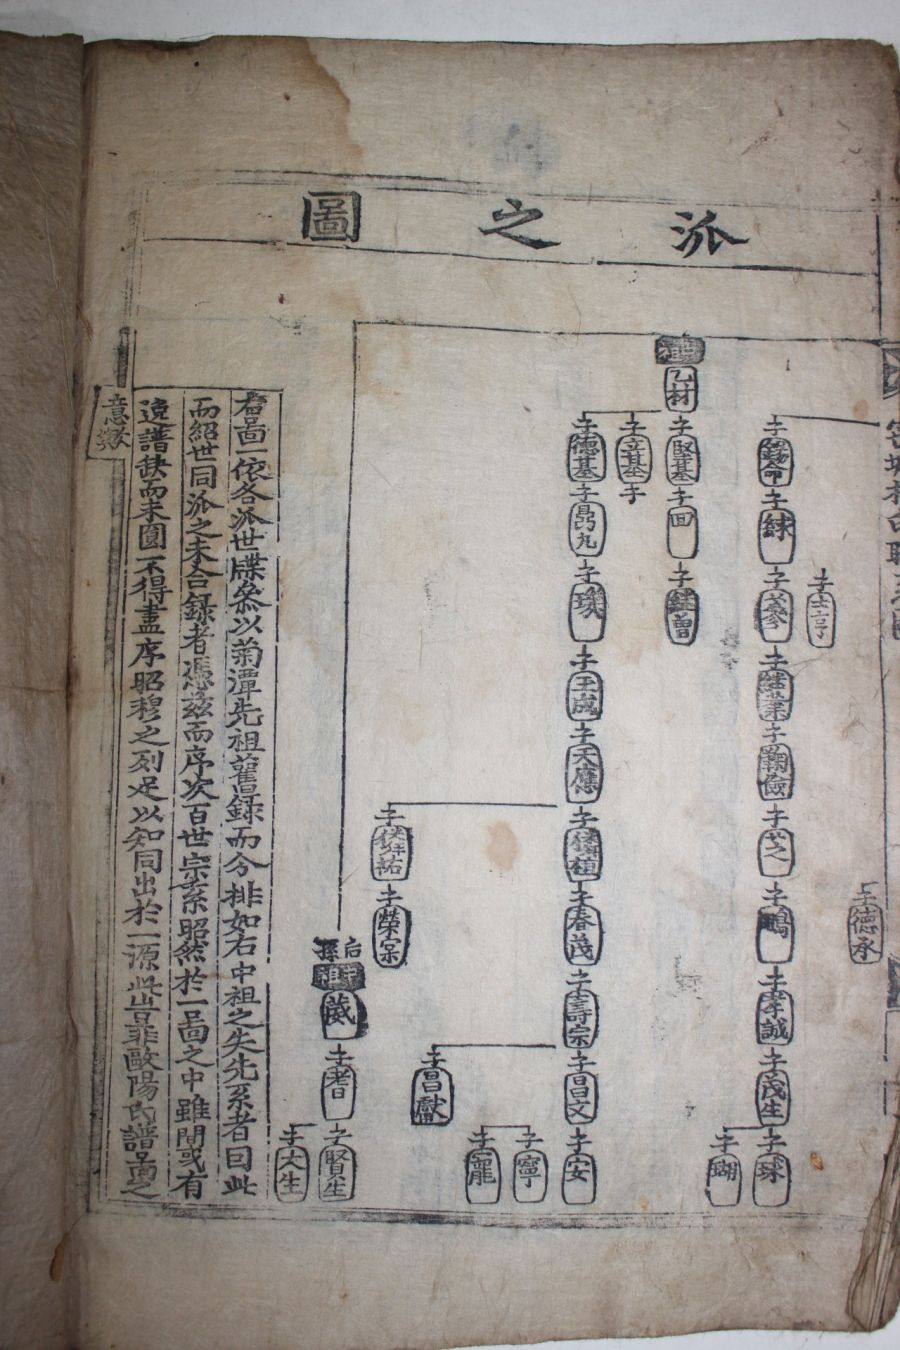 派之圖
密城朴
子
德承
子
士亨
子
錫命
子
銾
子
蔘
子
繼業
子
鞠儉
子
芝
子
鵰
子
孝誠
子
茂生
子
球
子
瑚
乙材
子
堅基
子
回
子
立基
子
子
德基
子
昌九
子
璞
子
玉成
子
天應
子
子
春茂
子
壽宗
子
昌文
子
安
子
寧
子
龍
子
昌獻
子
子
榮宗
后孫
葳
子
耆
子
賢生
子
大生
右圖一依各派世牒叅以菊潭先祖舊錄而今排如右中祖之失先系者曰此
而紹世同派之未合錄者憑玆而序次百世宗系昭然於一圖之中雖間或有
遠譜缺而未圓不得盡序昭穆之列足以知同出於一源此豈非歐陽氏譜圖之
意歟